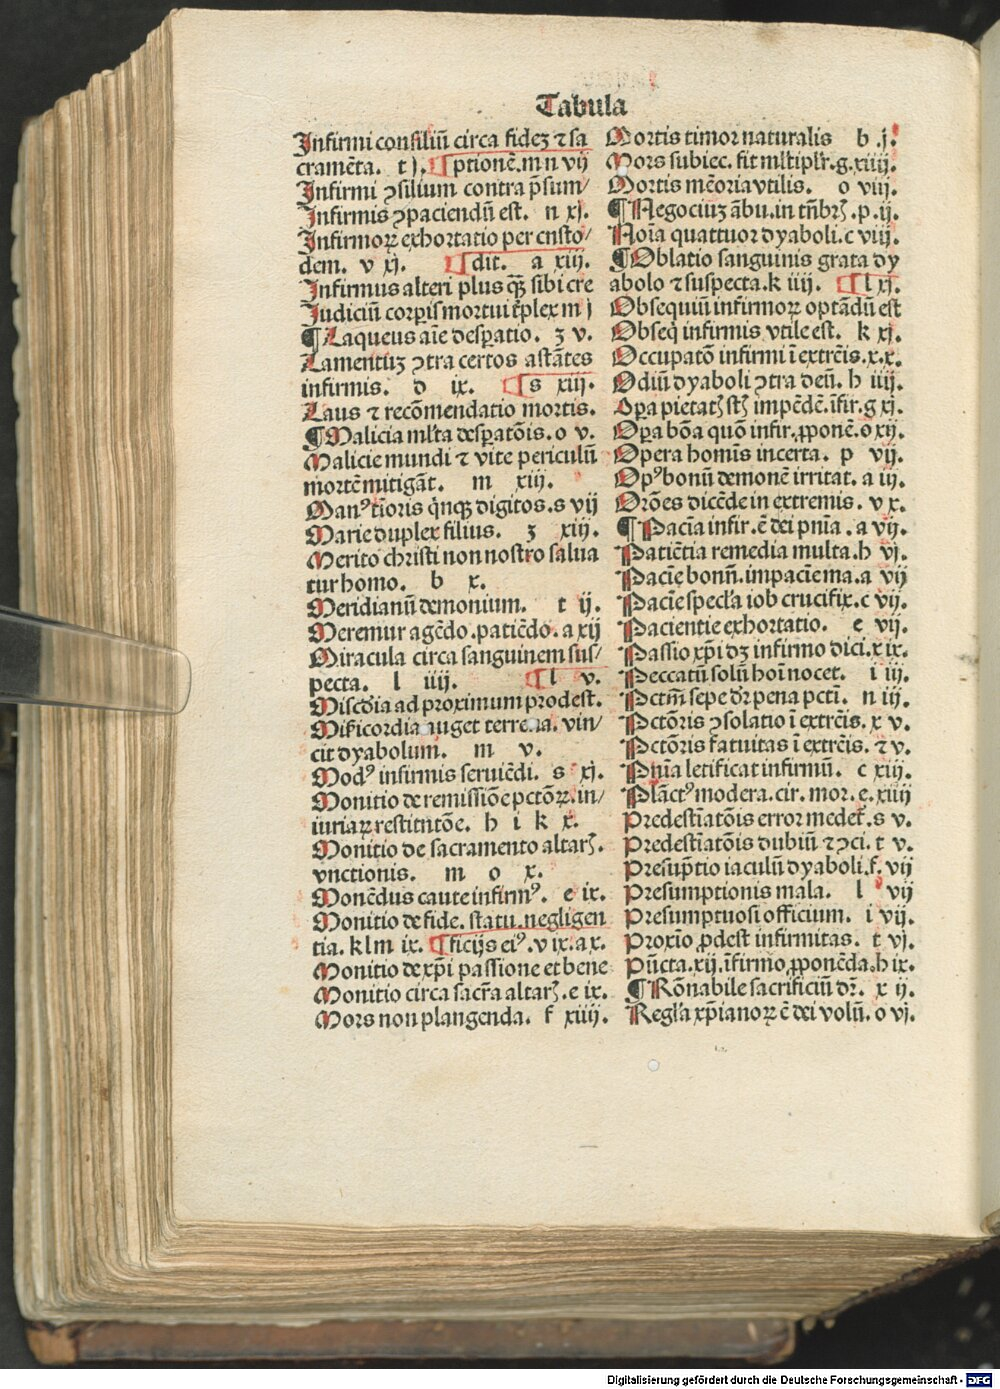 Tabula
Infirmi consiliū circa fidez ⁊ sa
cramēta. t j. ¶ptionē. m n vij
Infirmi ꝯsilium contra p̄sum/
Infirmis ꝯpaciendū est. n xj.
Infirmoꝝ exhortatio per custo/
dem. v xj. ¶dit. a xiij.
Infirmus alteri plus qꝫ sibi cre
Judiciū corpis mortui tplex m j
¶Laqueus aīe despatio. z v.
Lamentūz ꝯtra certos astātes
infirmis. d ix. ¶s xiij.
Laus ⁊ recōmendatio mortis.
¶Malicia mlta despatōis. o v.
Malicie mundi ⁊ vite periculū
mortē mitigāt. m xiij.
Manꝰ tīoris qnqꝫ digitos. s vij
Marie duplex filius. z xiij.
Merito christi non nostro salua
tur homo. b x.
Meridianū demonium. t ij.
Meremur agēdo. patiēdo. a xij
Miracula circa sanguinem sus/
pecta. l iiij. ¶l v.
Miscōia ad proximum prodest.
Mīricordia auget terrena. vin/
cit dyabolum. m v.
Modꝰ infirmis seruiēdi. s xj.
Monitio de remissiōe pctōꝝ. in/
iuriaꝝ restitutōe. h i k x.
Monitio de sacramento altarꝭ.
vnctionis. m o x.
Monēdus caute infirmꝰ. e ix.
Monitio de fide. statu. negligen
tia. k l m ix. ¶ficijs eiꝰ. v ix. a x.
Monitio de xp̄i passione et bene
Monitio circa sacr̄a altarꝭ. e ix.
Mors non plangenda. f xiiij.
Mortis timor naturalis b j.
Mors subiec. fit mltiplr. g. xiiij.
Mortis mēoria vtilis. o viij.
¶Negociuz ābu. in tn̄brꝭ. p. ij.
Noīa quattuor dyaboli. c viij.
¶Oblatio sanguinis grata dy
abolo ⁊ suspecta. k iiij. ¶l xj.
Obsequiū infirmoꝝ optādū est
Obseq̄ infirmis vtile est. k xj.
Occupatō infirmi ī extrēis. x. x.
Odiū dyaboli ꝯtra deū. h iiij.
Opa pietatꝭ stꝭ impēdē. īfir. g xj.
Opa bōa quō infir. ꝓponē. o xij.
Opera homīs incerta. p vij.
Opꝰ bonū demonē irritat. a iij.
Orōes dicēde in extremis. v x.
¶Pacīa infir. ē dei pnīa. a vij.
Patiētia remedia multa. h vj.
Pacīe bonū. impacīe ma. a vij
Pacīe specla iob crucifix. c vij.
Pacientie exhortatio. e vij.
Passio xp̄i dꝫ infirmo dici. x ix.
Peccatū solū hoī nocet. i iij.
Pctm̄ sepe dr̄ pena pcti. n iij.
Pctōris ꝯsolatio ī extrēis. x v.
Pctōris fatuitas ī extrēis. ⁊ v.
Pnīa letificat infirmū. c xiij.
Plāctꝰ modera. cir. mor. e. xiiij
Predestīatōis error medet. s v.
Predestīatōis dubiū ⁊ ꝯci. t v.
Presup̄tio iaculū dyaboli. f. vij
Presumptionis mala. l vij
Presumptuosi officium. i vij.
Proxīo ꝓdest infirmitas. t vj.
Pūcta. xij. īfirmo ꝓponēda. h ix.
¶Rōnabile sacrificiū dr̄. x ij.
Regl̄a xp̄ianoꝝ ē dei volū. o vj.
Digitalisierung gefördert durch die Deutsche Forschungsgemeinschaft - DFG